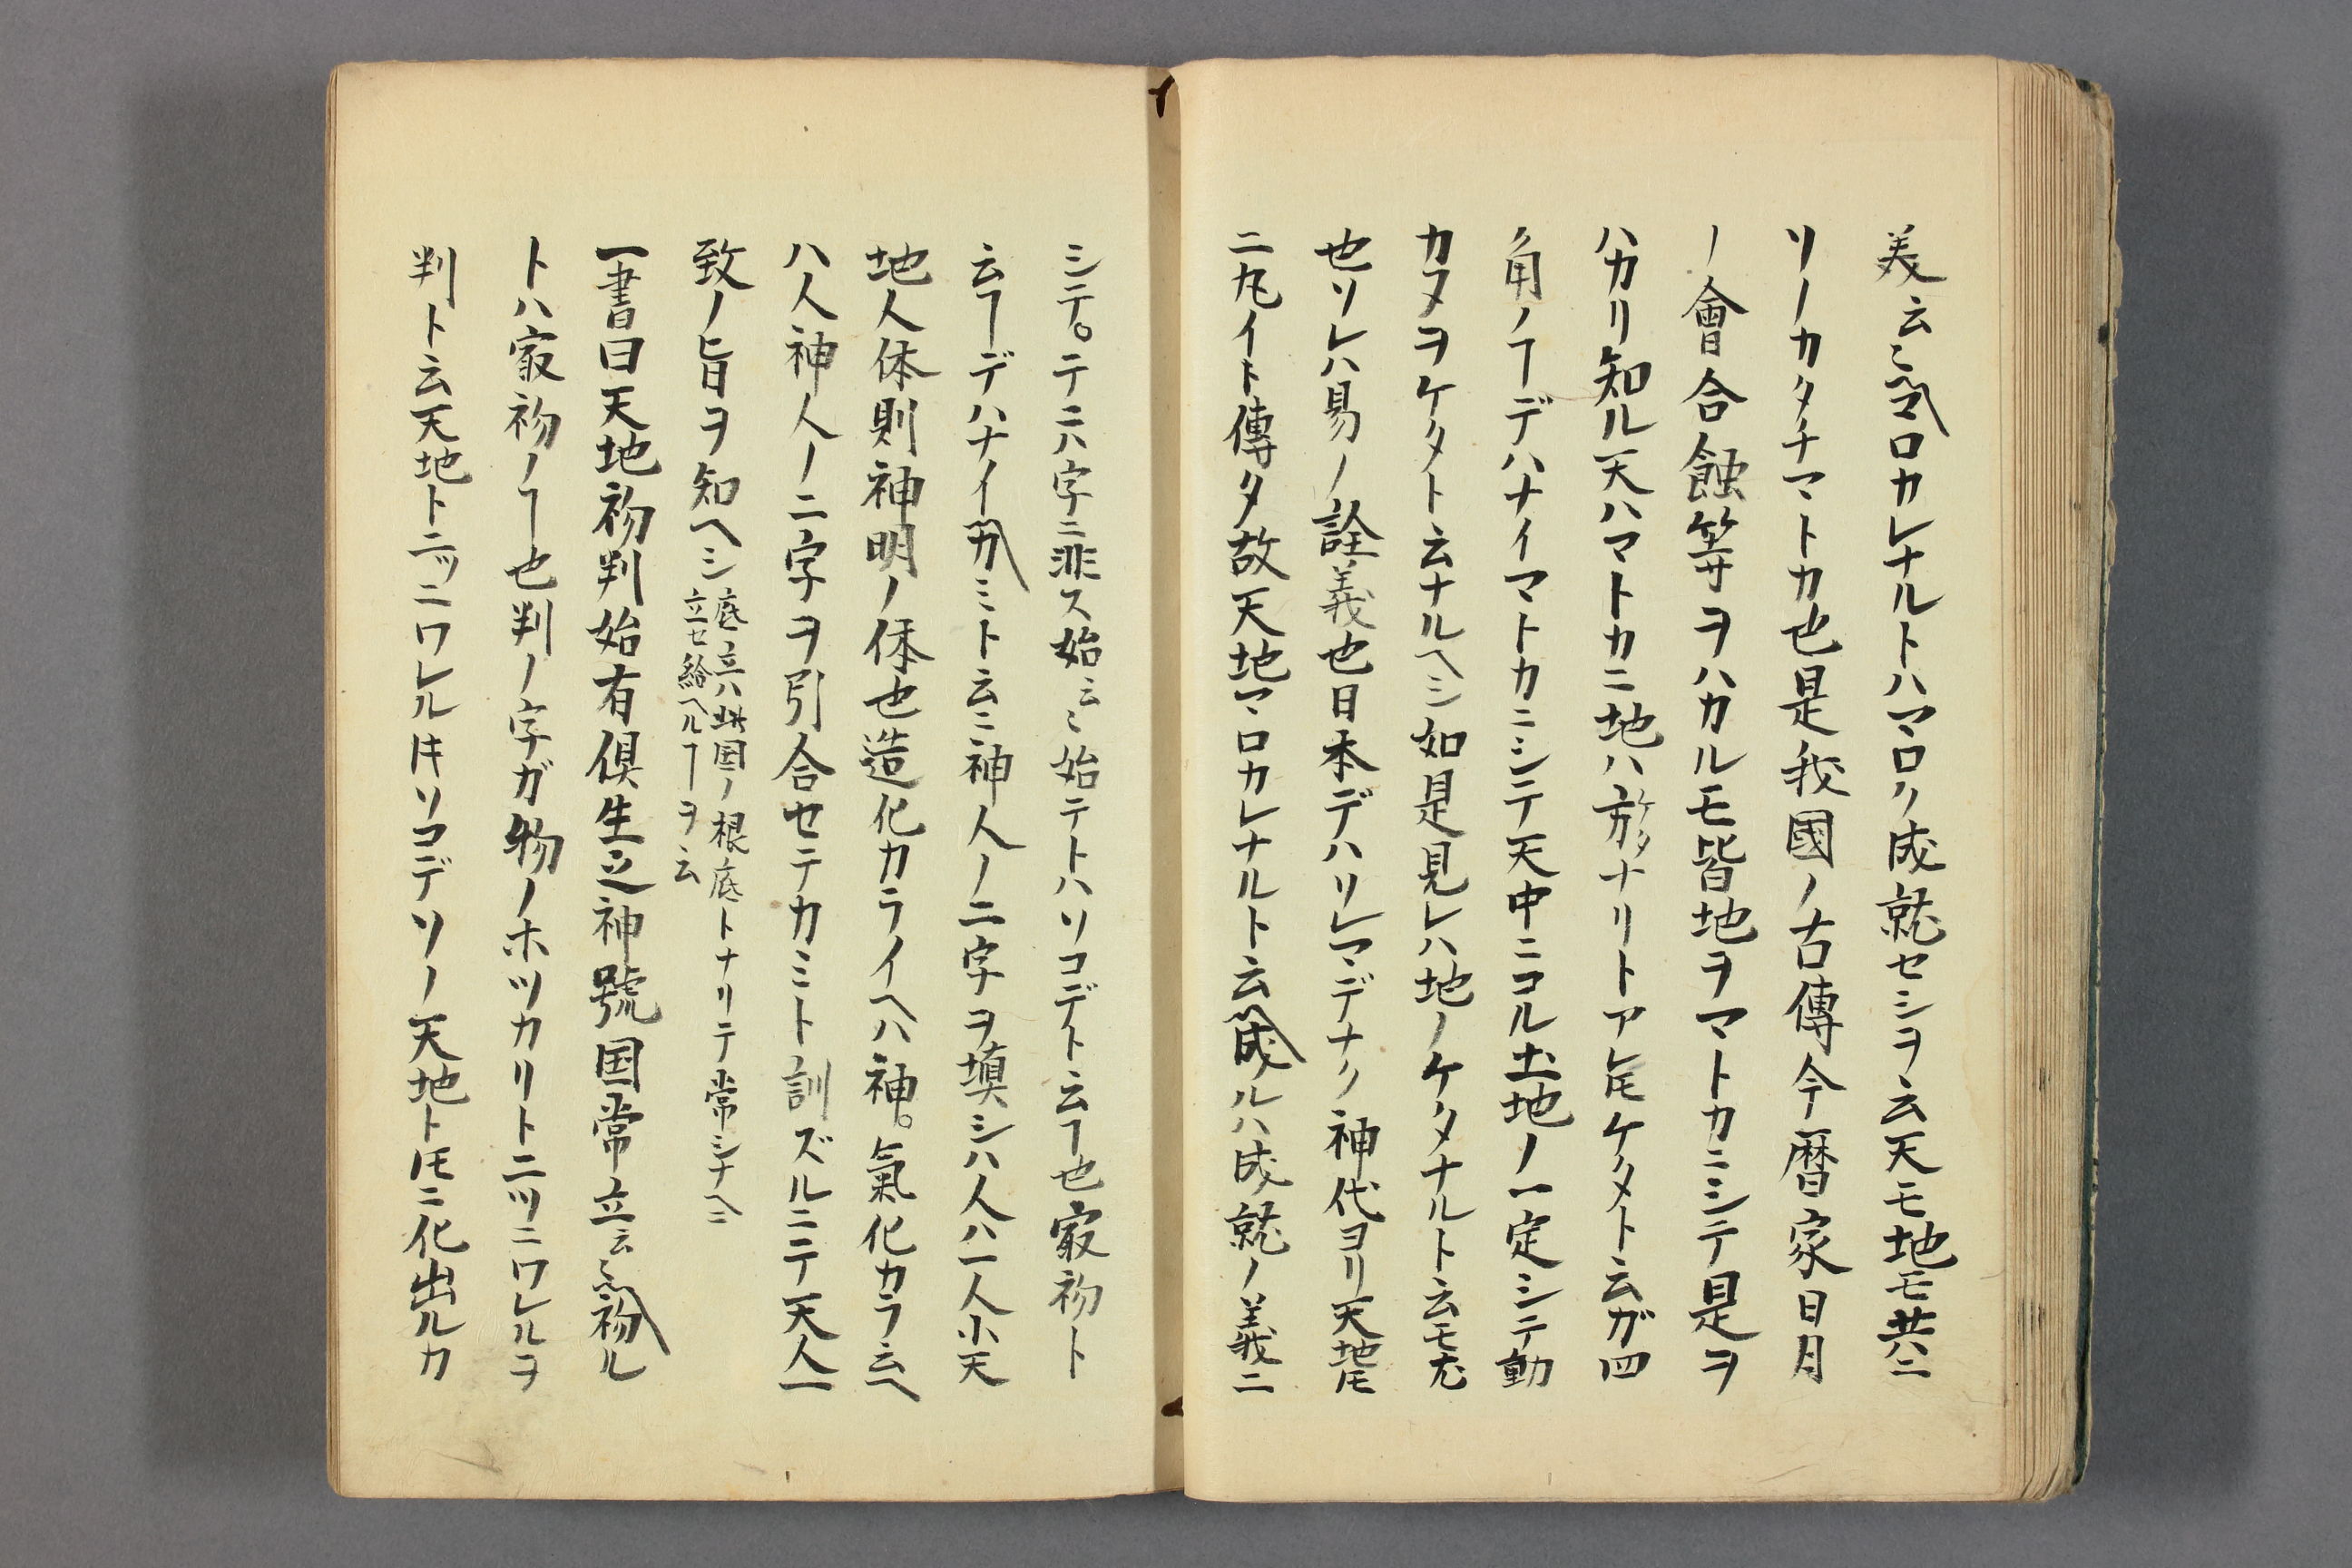 美云々〽マロカレナルトハマロク成就セシヲ云天モ地モ共ニ
ソノカタチマトカ也是我國ノ古傳今暦家日月
ノ會合蝕等ヲハカルモ皆地ヲマトカニシテ是ヲ
ハカリ知ル天ハマトカニ地ハ方ケタナリトアレ𪜈ケタト云ガ四
角ノヿデハナイマトカニシテ天中ニコル土地ノ一定シテ動
カヌヲケタト云ナルヘシ如是見レハ地ノケタナルト云モ尤
也ソレハ易ノ詮義也日本デハソレマデナク神代ヨリ天地𪜈
ニ丸イト傳タ故天地マロカレナルト云〽成ルハ成就ノ義ニ
シテ。テニハ字ニ非ス始云々始テトハソコデト云ヿ也㝡初ト
云ヿデハナイ〽カミト云ニ神人ノ二字ヲ塡シハ人ハ一人小天
地人体則神明ノ体也造化カライヘハ神。氣化カラ云ヘ
ハ人神人ノ二字ヲ引合セテカミト訓ズルニテ天人一
致ノ旨ヲ知ヘシ
底立ハ此国ノ根底トナリテ常シナヘニ
立セ給ヘルヿヲ云
一書曰天地初判始有倶生之神號国常立云々〽初ル
トハ㝡初ノヿ也判ノ字ガ物ノホツカリト二ツニワレルヲ
判ト云天地ト二ツニワレルキソコデソノ天地ト𪜈ニ化出ルカ